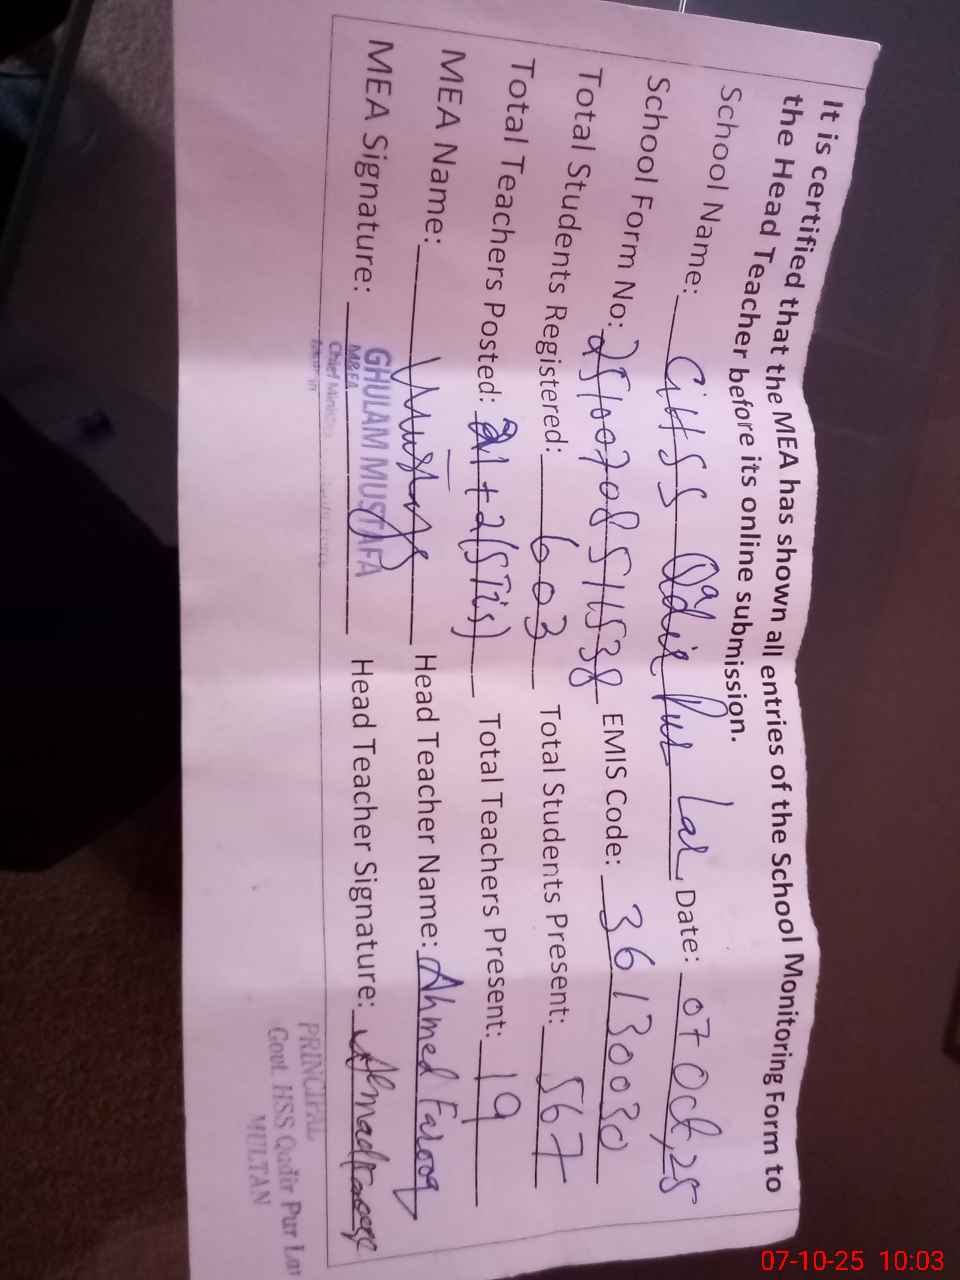 It is certified that the MEA has shown all entries of the School Monitoring Form to
the Head Teacher before its online submission.
School Name: GHSS Qadir Pur Lal, Date: 07 Oct, 25
School Form No: 251007085111538 EMIS Code: 36130030
Total Students Registered: 603 Total Students Present: 567
Total Teachers Posted: 21+2(STIs) Total Teachers Present: 19
MEA Name: Head Teacher Name: Ahmed Farooq
MEA Signature: Head Teacher Signature:
GHULAM MUSTAFA
M&EA
Chief Minister
PRINCIPAL
Govt. HSS Qadir Pur Lar
MULTAN
07-10-25 10:03